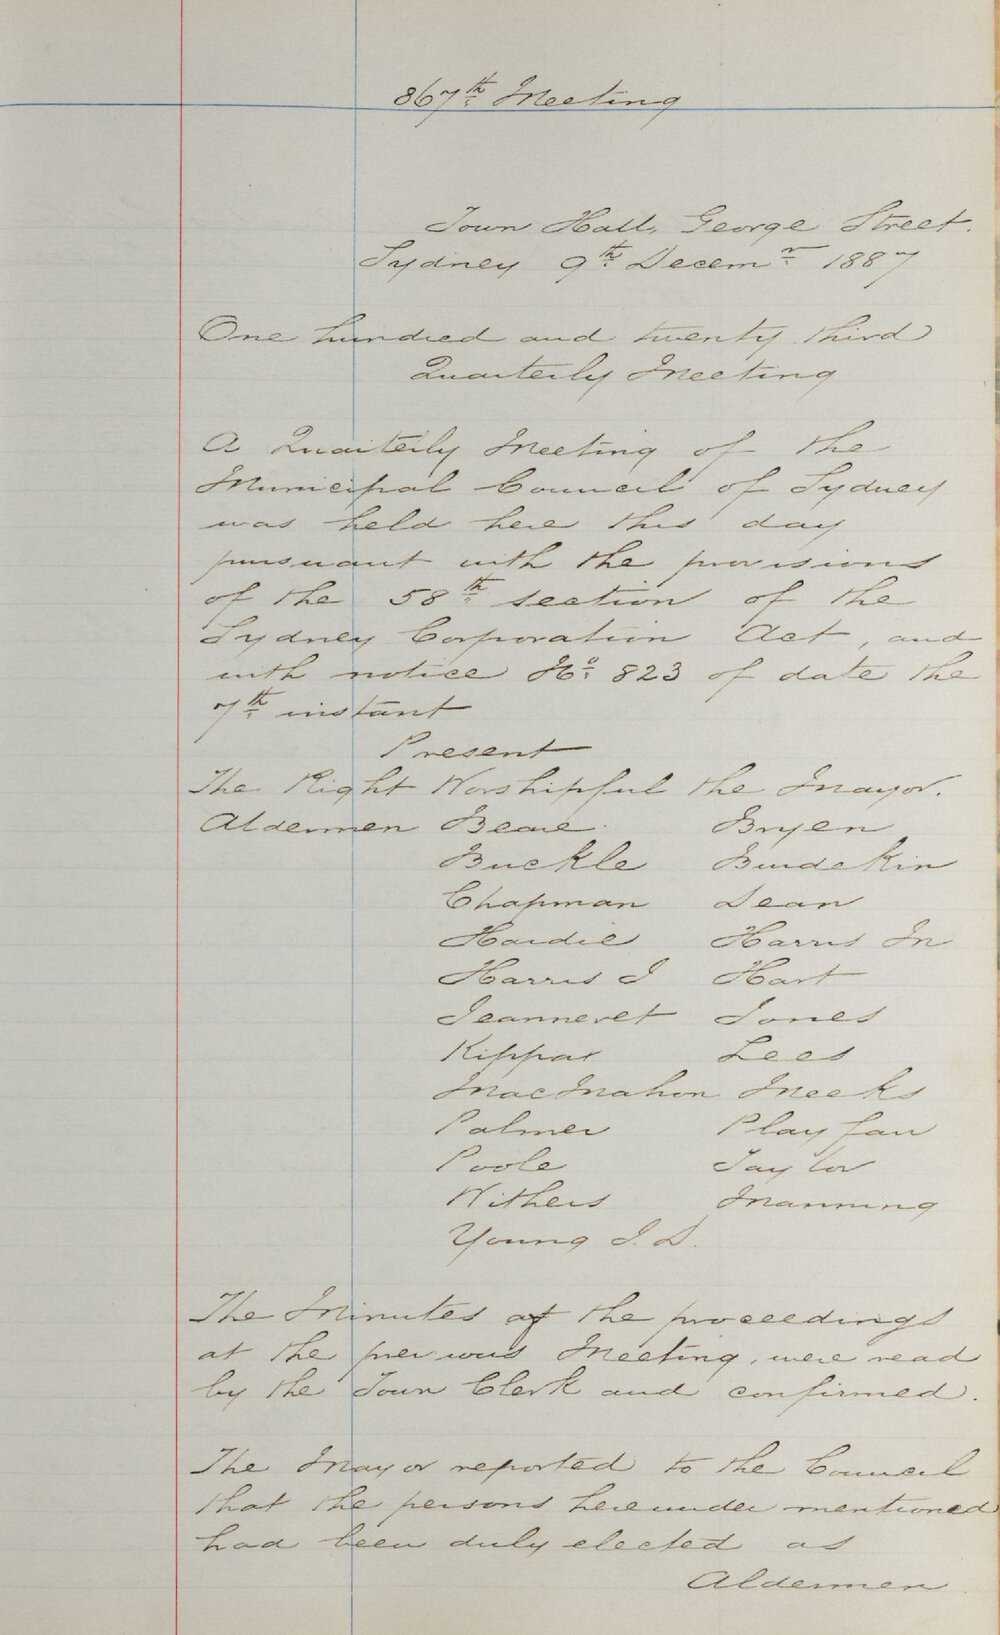 867th Meeting
Town Hall, George Street.
Sydney 9th Decemr 1887
One hundred and twenty third
Quarterly Meeting
A Quarterly Meeting of the
Municipal Council of Sydney
was held here this day
pursuant with the provisions
of the 58th section of the
Sydney Corporation Act, and
with notice No 823 of date the
7th instant
Present
The Right Worshipful the Mayor.
Aldermen Beare Bryen
Buckle Burdekin
Chapman Dean
Hardie Harris Jn
Harris J Hart
Jeanneret Jones
Kippax Lees
MacMahon Meeks
Palmer Playfair
Poole Taylor
Withers Manning
Young J. D.
The Minutes of the proceedings
at the previous Meeting, were read
by the Town Clerk and confirmed.
The Mayor reported to the Council
that the persons hereunder mentioned
had been duly elected as
Aldermen